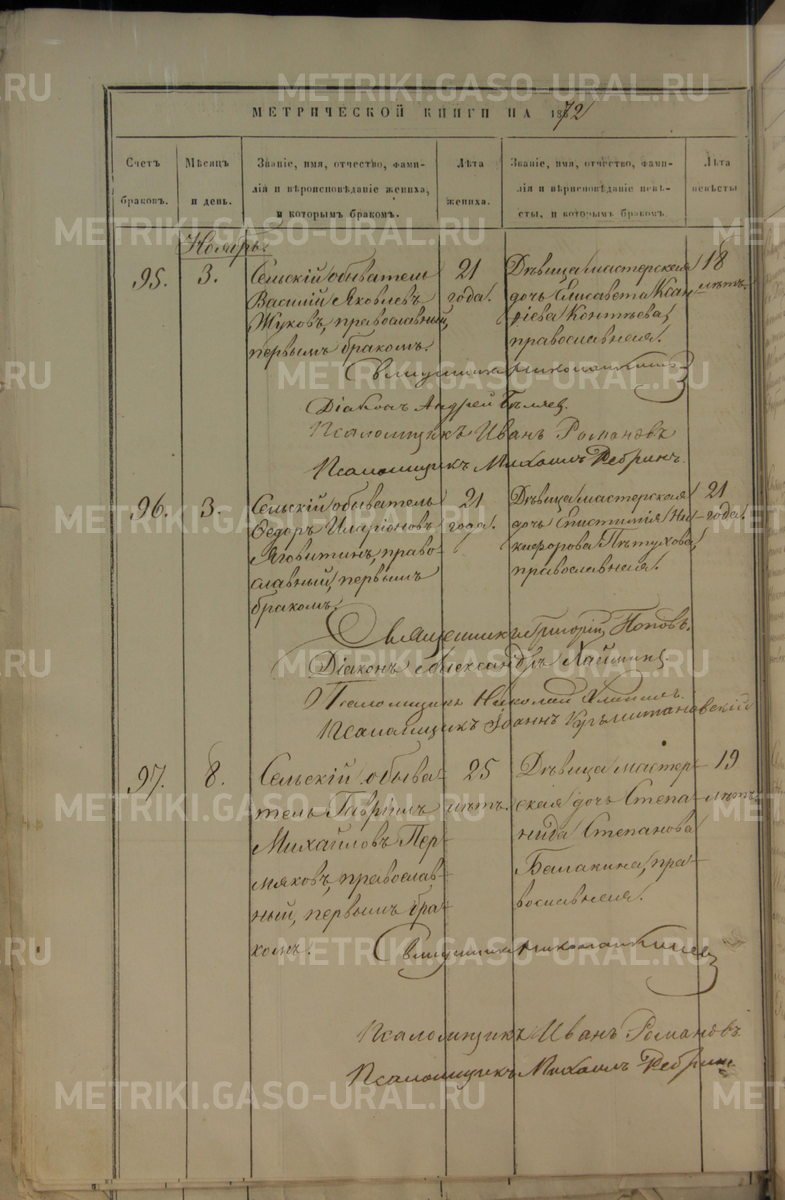 МЕТРИЧЕСКОЙ КНИГИ НА 1872
Счетъ браковъ.
Мѣсяцъ и день.
Званіе, имя, отчество, фами-
лія и вѣроисповѣданіе жениха,
и которымъ бракомъ.
Лѣта жениха.
Званіе, имя, отчество, фами-
лія и вѣрисповѣданіе невѣ-
сты, и которымъ бракомъ.
Лѣта невѣсты
Ноябрь.
95.
3.
Сельскій обыватель
Василій Яковлевъ
Жуковъ, православный,
первымъ бракомъ.
21
года.
Дѣвица мастерская
дочь Елисавета
православная.
18
лѣтъ.
Священникъ Николай
Діаконъ Андрей Бѣляев.
Псаломщикъ Иванъ Романовъ
Псаломщикъ Михаилъ Ребринъ.
96.
3.
Сельскій обыватель
Ѳедоръ Иларіоновъ
Яговитинъ, право-
славный, первымъ
бракомъ.
21
года.
Дѣвица мастерская
дочь Епистимія Ни-
кифорова Пѣтухова,
православная.
21
года.
Священникъ Григорій Поповъ.
Діаконъ Александръ
Псаломщикъ Николай
Псаломщикъ Іоаннъ
97.
8.
Сельскій обыва-
тель Гавріилъ
Михайловъ Пер-
мяковъ, православ-
ный, первымъ бра-
комъ.
25
лѣтъ.
Дѣвица мастер-
ская дочь Степа-
нида Степанова
Балакина, пра-
вославная.
19
лѣтъ.
Священникъ Николай
Псаломщикъ Иванъ Романовъ.
Псаломщикъ Михаилъ Ребринъ
METRIKI.GASO-URAL.RU